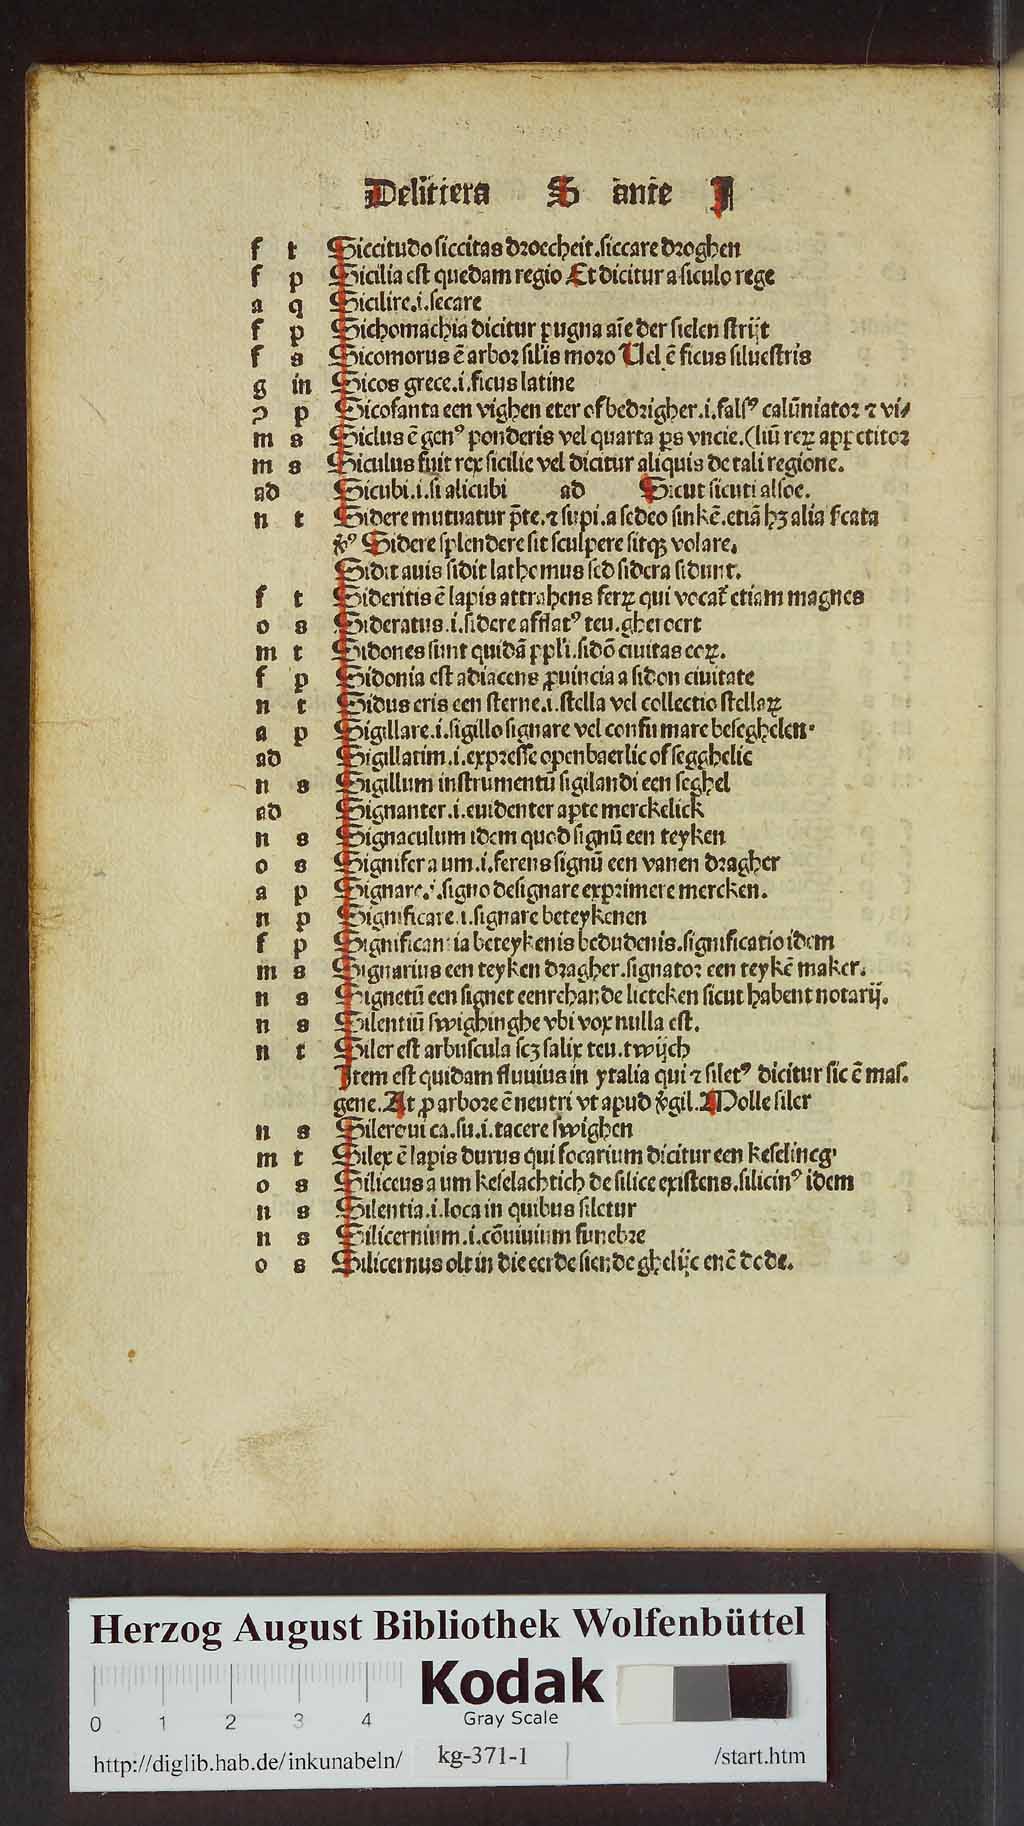 De littera S ante I
f t Siccitudo siccitas droecheit .siccare droghen
f p Sicilia est quedam regio Et dicitur a siculo rege
a q Sicilire .i. secare
f p Sichomachia dicitur pugna aīe der sielen strijt
f s Sicomorus ē arbor sil'is moro Uel ē ficus siluestris
g in Sicos grece .i. ficus latine
ↄ p Sicofanta een vighen eter of bedrigher .i. falsꝰ calūniator ⁊ vi⸗
m s Siclus ē genꝰ ponderis vel quarta ps vncie. (liū reꝝ appetitor
m s Siculus fuit rex sicilie vel dicitur aliquis de tali regione.
ad Sicubi .i. si alicubi ad Sicut sicuti alsoe.
n t Sidere mutuatur p̄te. ⁊ supi. a sedeo sinkē. etiā hꝫ alia
Sidere splendere sit sculpere sitqꝫ volare.
Sidit auis sidit lathomus sed sidera sidunt.
f t Sideritis ē lapis attrahens ferꝝ qui vocat̄ etiam magnes
o s Sideratus .i. sidere afflatꝰ teu. gheroert
m t Sidones sunt quidā ppl'i. sidō ciuitas eoꝝ.
f p Sidonia est adiacens ꝓuincia a sidon ciuitate
n t Sidus eris een sterne .i. stella vel collectio stellaꝝ
a p Sigillare .i. sigillo signare vel confirmare beseghelen.
ad Sigillatim .i. expresse openbaerlic of segghelic
n s Sigillum instrumentū sigilandi een seghel
ad Signanter .i. euidenter apte merckelick
n s Signaculum idem quod signū een teyken
o s Signifer a um .i. ferens signū een vanen dragher
a p Signare .i. signo designare exprimere mercken.
n p Significare .i. signare beteykenen
f p Significantia beteykenis bedudenis. significatio idem
m s Signarius een teyken dragher. signator een teykē maker.
n s Signetū een signet eenrehande licteken sicut habent notarij.
n s Silentiū swighinghe vbi vox nulla est.
n t Siler est arbuscula scꝫ salix teu. twijch
Item est quidam fluuius in ytalia qui ⁊ siletꝰ dicitur sic ē mas.
gene. At ꝓ arbore ē neutri vt apud v̄gil. Molle siler
n s Silere ui ca. su .i. tacere swighen
m t Silex ē lapis durus qui focarium dicitur een keselincg.
o s Siliceus a um keselachtich de silice existens. silicinꝰ idem
n s Silentia .i. loca in quibus siletur
n s Silicernium .i. cōuiuium funebre
o s Silicernus olt in die eerde siende ghelijc enē dode.
Herzog August Bibliothek Wolfenbüttel
Kodak
Gray Scale
0 1 2 3 4
http://diglib.hab.de/inkunabeln/ kg-371-1 /start.htm